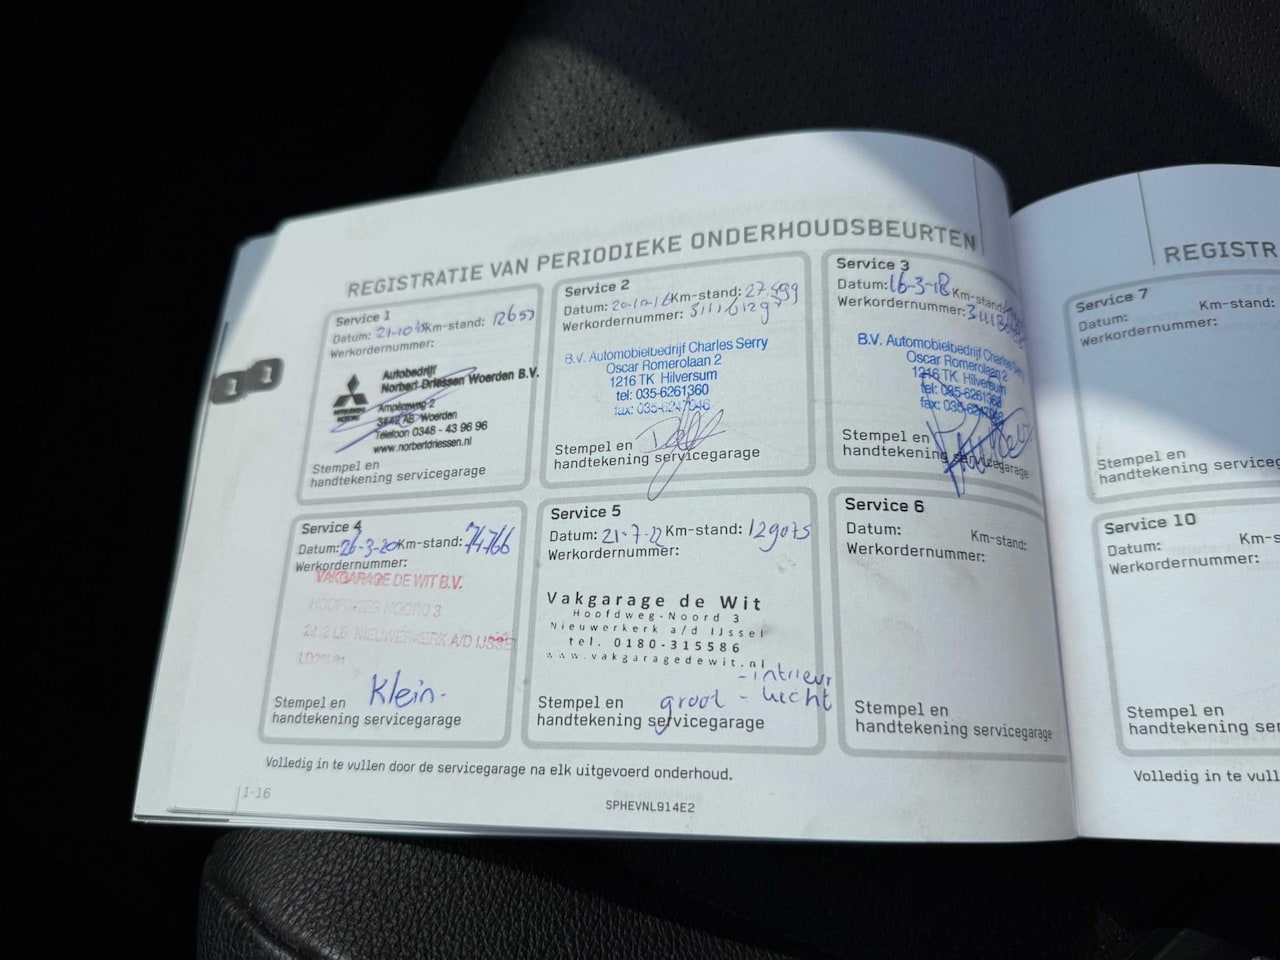 REGISTRATIE VAN PERIODIEKE ONDERHOUDSBEURTEN
Service 1
Datum: 21-10- Km-stand: 12653
Werkordernummer:
Autobedrijf
Norbert Driessen Woerden B.V.
Ampèreweg 2
3442 AB Woerden
Telefoon 0348 - 43 96 96
www.norbertdriessen.nl
MITSUBISHI
MOTORS
Stempel en
handtekening servicegarage
Service 2
Datum: 20-10-16 Km-stand: 27.499
Werkordernummer:
B.V. Automobielbedrijf Charles Serry
Oscar Romerolaan 2
1216 TK Hilversum
tel: 035-6261360
fax: 035-6247046
Stempel en
handtekening servicegarage
Service 3
Datum: 16-3-18 Km-stand:
Werkordernummer:
B.V. Automobielbedrijf Charles Serry
Oscar Romerolaan 2
1216 TK Hilversum
tel: 035-6261360
fax: 035-6247046
Stempel en
handtekening servicegarage
Service 4
Datum: 26-3-20 Km-stand: 74766
Werkordernummer:
VAKGARAGE DE WIT B.V.
HOOFDWEG NOORD 3
NIEUWERKERK A/D IJSSEL
Klein-
Stempel en
handtekening servicegarage
Service 5
Datum: 21-7-22 Km-stand: 129075
Werkordernummer:
Vakgarage de Wit
Hoofdweg-Noord 3
Nieuwerkerk a/d IJssel
tel. 0180-315586
www.vakgaragedewit.nl
- intrieur
groot - lucht
Stempel en
handtekening servicegarage
Service 6
Datum: Km-stand:
Werkordernummer:
Stempel en
handtekening servicegarage
Volledig in te vullen door de servicegarage na elk uitgevoerd onderhoud.
1-16
SPHEVNL914E2
1 1
REGISTR
Service 7
Datum: Km-stand:
Werkordernummer:
Stempel en
handtekening serviceg
Service 10
Datum: Km-s
Werkordernummer:
Stempel en
handtekening ser
Volledig in te vull